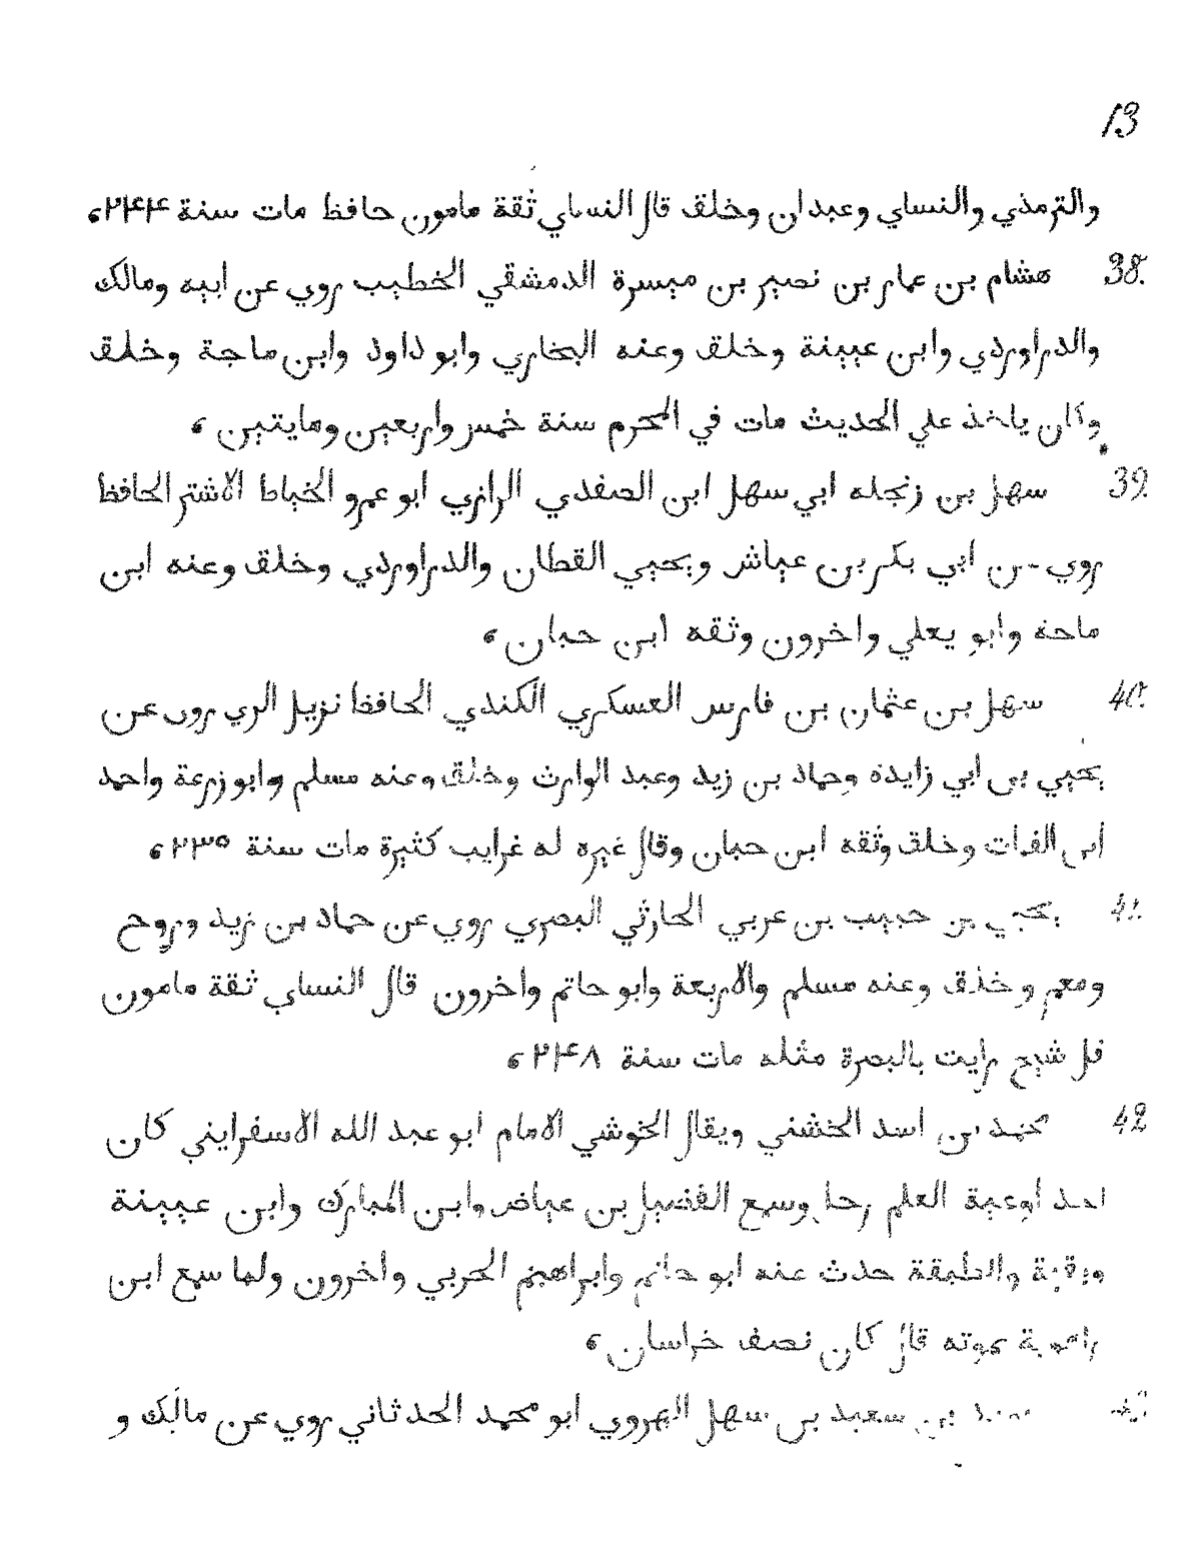 13
والترمذي والنساي وعبدان وخلق قال النساي ثقة مامون حافظ مات سنة ٢٤٤،
38. هشام بن عمار بن نصير بن ميسرة الدمشقي الخطيب روي عن ابيه ومالك
والدراوردي وابن عيينة وخلق وعنه البخاري وابو داود وابن ماجة وخلق
وكان ياخذ علي الحديث مات في المحرم سنة خمس واربعين ومايتين ،
39. سهل بن زنجله ابي سهل ابن الصفدي الرازي ابو عمرو الخياط الاشتر الحافظ
روي عن ابي بكر بن عياش ويحيي القطان والدراوردي وخلق وعنه ابن
ماجه وابو يعلي واخرون وثقه ابن حبان ،
40. سهل بن عثمان بن فارس العسكري الكندي الحافظ نزيل الري روي عن
يحيي بن ابي زايدة وحماد بن زيد وعبد الوارث وخلق وعنه مسلم وابو زرعة واحمد
ابن الفرات وخلق وثقه ابن حبان وقال غيره له غرايب كثيرة مات سنة ٢٣٥ ،
41. يحيي بن حبيب بن عربي الحارثي البصري روي عن حماد بن زيد وروح
ومعمر وخلق وعنه مسلم والاربعة وابو حاتم واخرون قال النساي ثقة مامون
قل شيح رايت بالبصرة مثله مات سنة ٢٤٨ ،
42 محمد بن اسد الخشني ويقال الخوشي الامام ابو عبد الله الاسفرايني كان
احد اوعية العلم رحل وسمع الفضيل بن عياض وابن المبارك وابن عيينة
وبقية والطبقة حدث عنه ابو حاتم وابراهيم الحربي واخرون ولما سمع ابن
راهوية بموته قال كان نصف خراسان ،
بن سعيد بن سهل الهروي ابو محمد الحدثاني روي عن مالك و